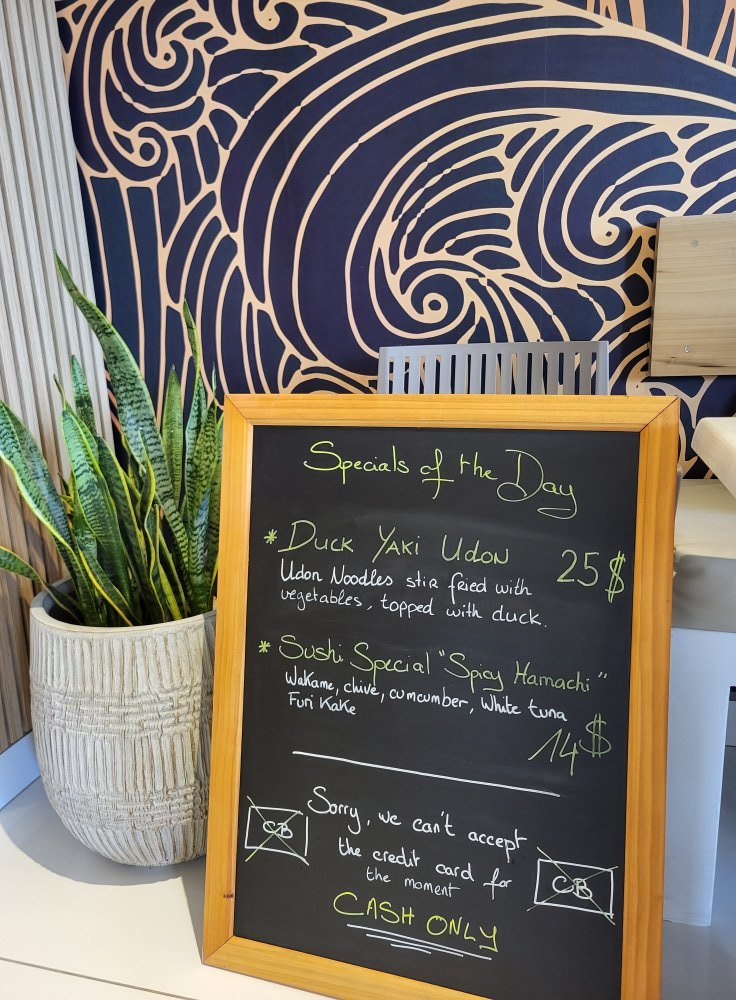 Specials of the Day
* Duck Yaki Udon 25$
Udon Noodles stir fried with
vegetables, topped with duck.
* Sushi Special "Spicy Hamachi"
Wakame, chive, cumcumber, White tuna
Furi Kake
14$
Sorry, we can't accept
the credit card for
the moment
CB
CB
CASH ONLY